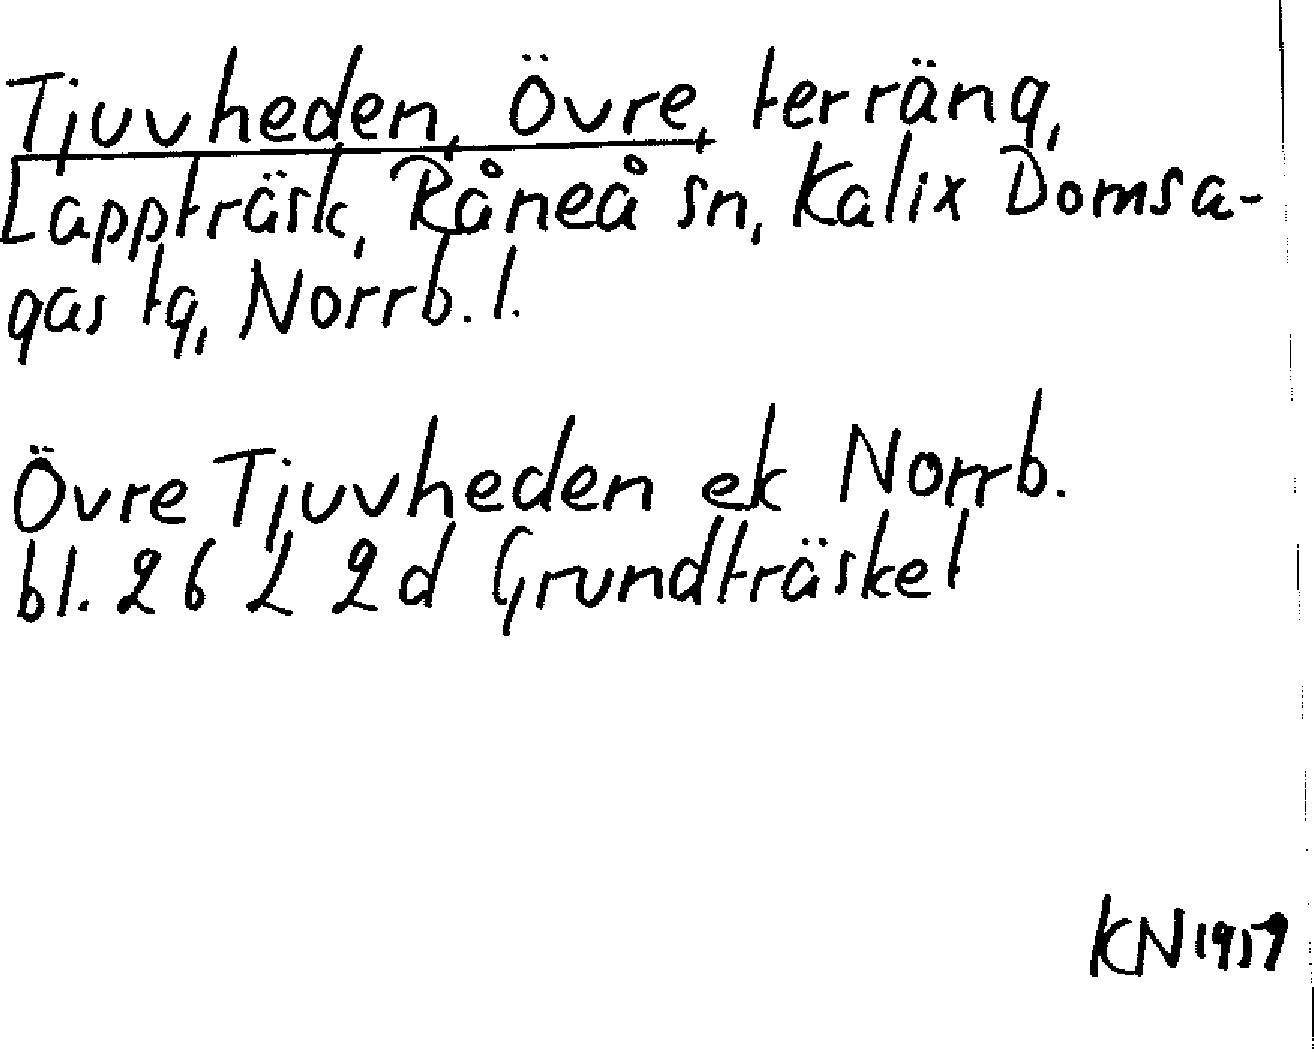 Tjuvheden, Övre, terräng,
Lappträsk, Råneå sn, Kalix Domsa-
gas tg, Norrb. l.
Övre Tjuvheden ek Norrb.
bl. 26 L 2d Grundträsket
KN